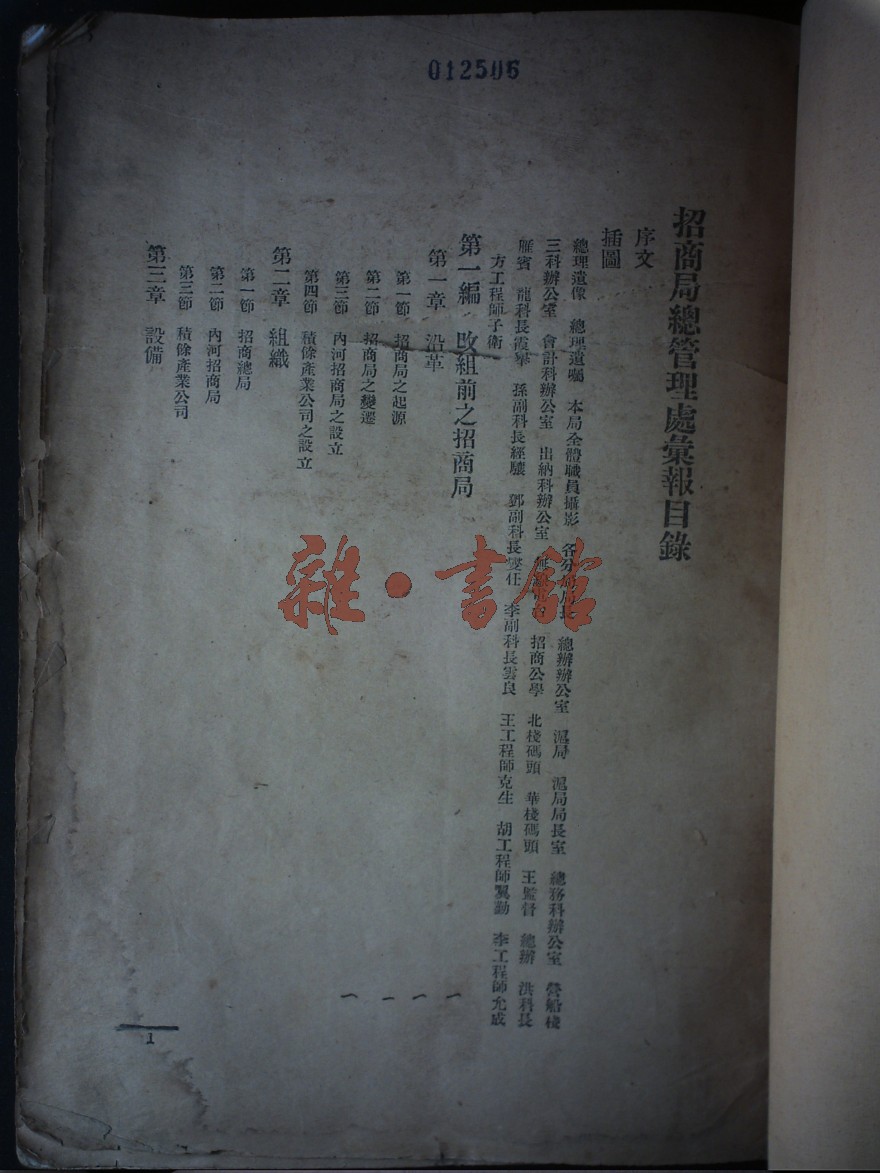 012506
招商局總管理處彙報目錄
序文
插圖
總理遺像　總理遺囑　本局全體職員攝影　各分局局長　總辦辦公室　滬局　滬局局長室　總務科辦公室　營船棧
三科辦公室　會計科辦公室　出納科辦公室　招商公學　北棧碼頭　華棧碼頭　王監督　總辦　洪科長
雁賓　龍科長霞舉　孫副科長經驤　鄧副科長雯任　李副科長雲良　王工程師克生　胡工程師翼勤　李工程師允成
方工程師子衛
第一編　改組前之招商局
第一章　沿革
第一節　招商局之起源
第二節　招商局之變遷
第三節　內河招商局之設立
第四節　積餘產業公司之設立
第二章　組織
第一節　招商總局
第二節　內河招商局
第三節　積餘產業公司
第三章　設備
1
雜·書館